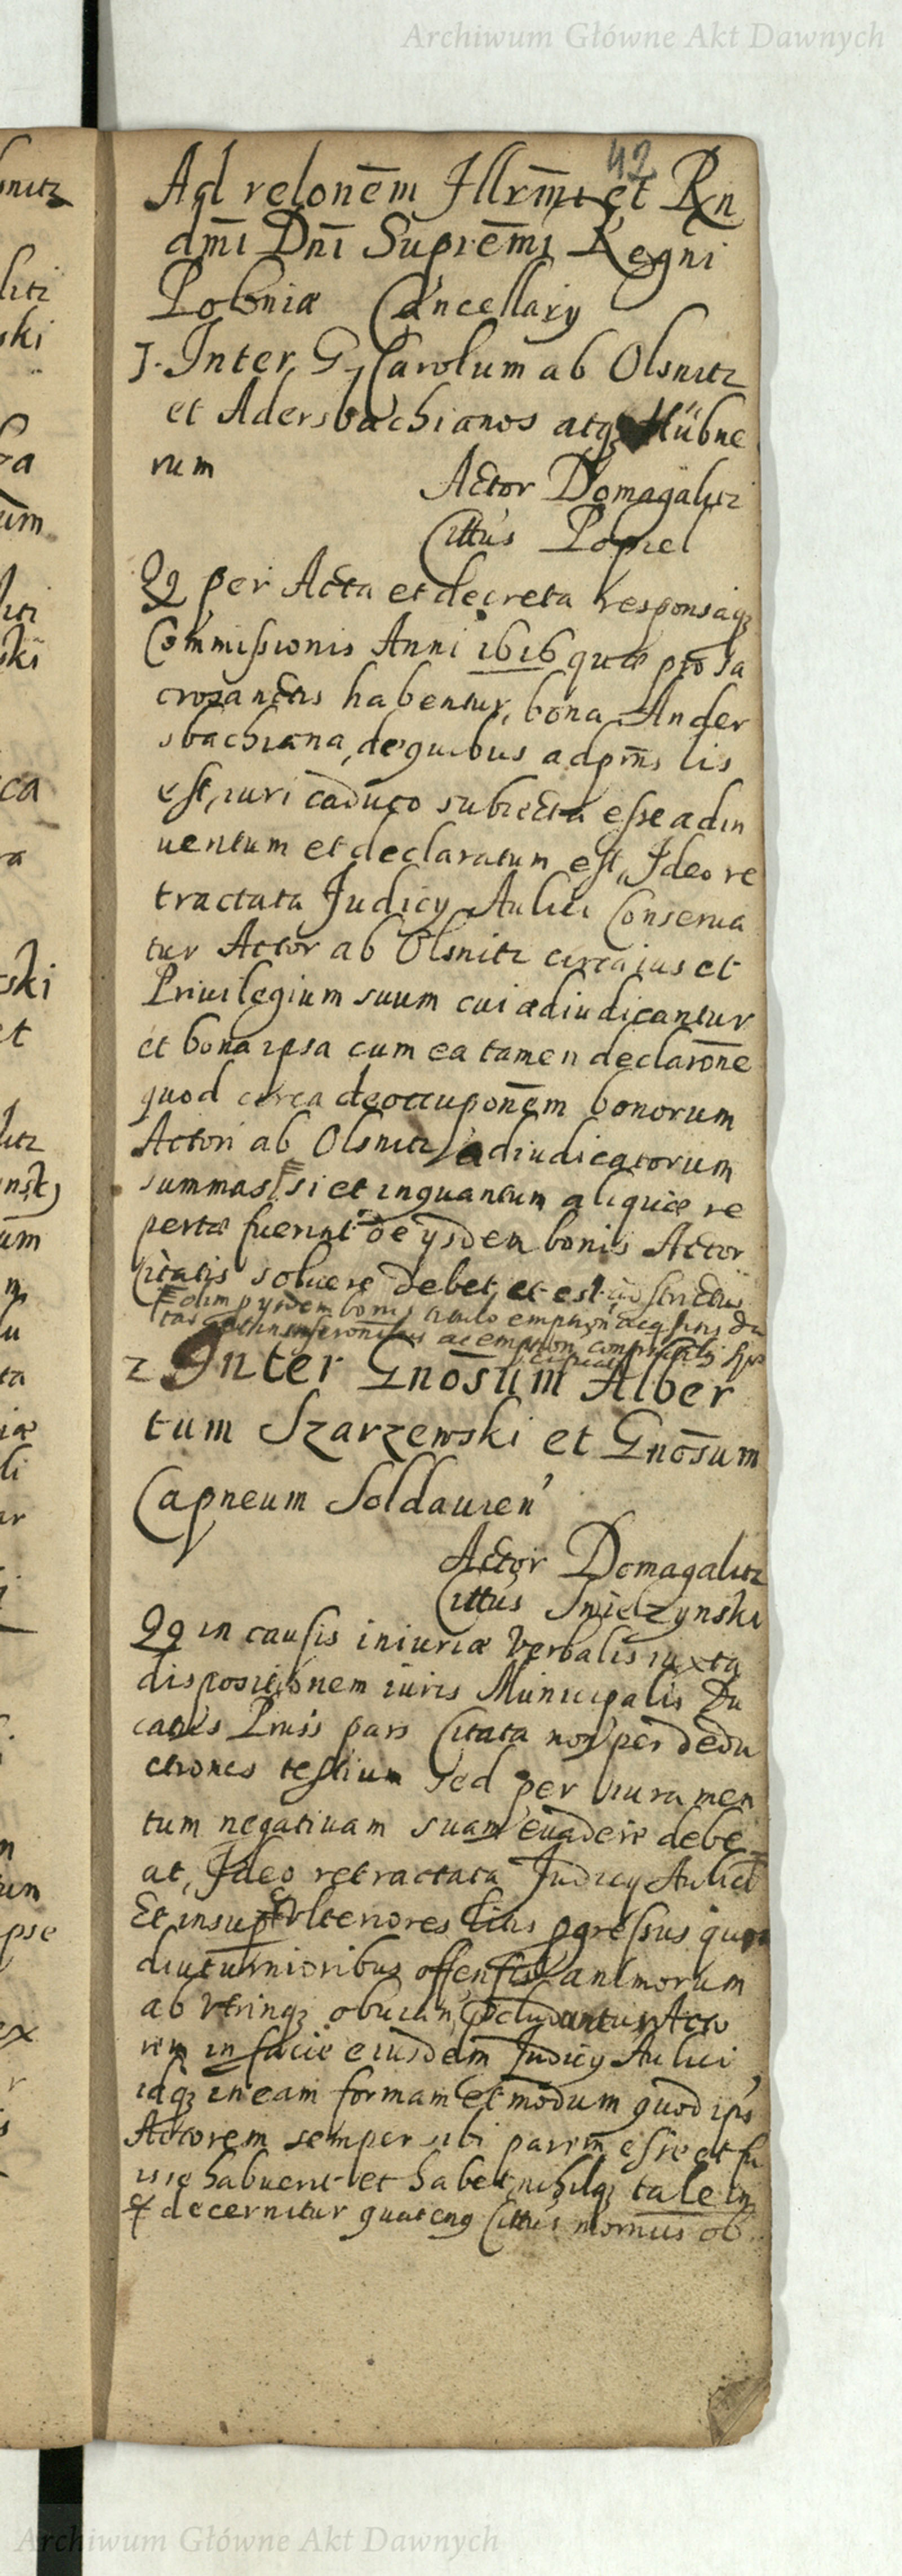 Archiwum Główne Akt Dawnych
42
Ad relonēm Illrm̄i et Rn
dm̄i Dn̄i Suprēmi Regni
Poloniæ Cancellarij
1. Inter G. Carolum ab Olsnitz
et Adersbachianos atq; Hübne
rum
Actor Domagalitz
Cittus Popiel
Qq per Acta et decreta responsaq;
Commissionis Anni 1616 quæ pro sa
crosanctis habentur, bona Ander
sbachiana, de quibus ad pm̄s lis
est, iuri caduco subiecta esse adin
uentum et declaratum est, Ideo re
tractata Judicij Aulici Conserua
tur Actor ab Olsnitz circa ius et
Priuilegium suum cui adiudicantur
et bona ipsa cum ea tamen declarōne
quod circa deoccuponēm bonorum
Actori ab Olsnitz adiudicatorum
summas si et inquantum aliquæ re
pertæ fuerint de ijsdem bonis Actor
Citatis soluere debet, et est
olim ijsdem bonis
2 Inter Gnōsum Alber
tum Szarzewski et Gnōsum
Capneum Soldauien'
Actor Domagalitz
Cittus Smielzynski
Qq in causis iniuriæ Verbalis iuxta
disposicionem iuris Municipalis Du
calis Prussi pars Citata non per dedu
ctiones testium sed per iuramen
tum negatiuam suam euadere debe
at, Ideo retractata Judicij Aulici
Et insup Vlteriores litis pgressus quo
diuturnioribus offensis animorum
ab vtrinq; obuian
rem in facie eiusdem Judicij Aulici
idq; in eam formam et modum quod ips
Actorem semper sibi parem esse et fu
isse habuerit et habet nihilq; tale in
decernitur quatenq Cittus